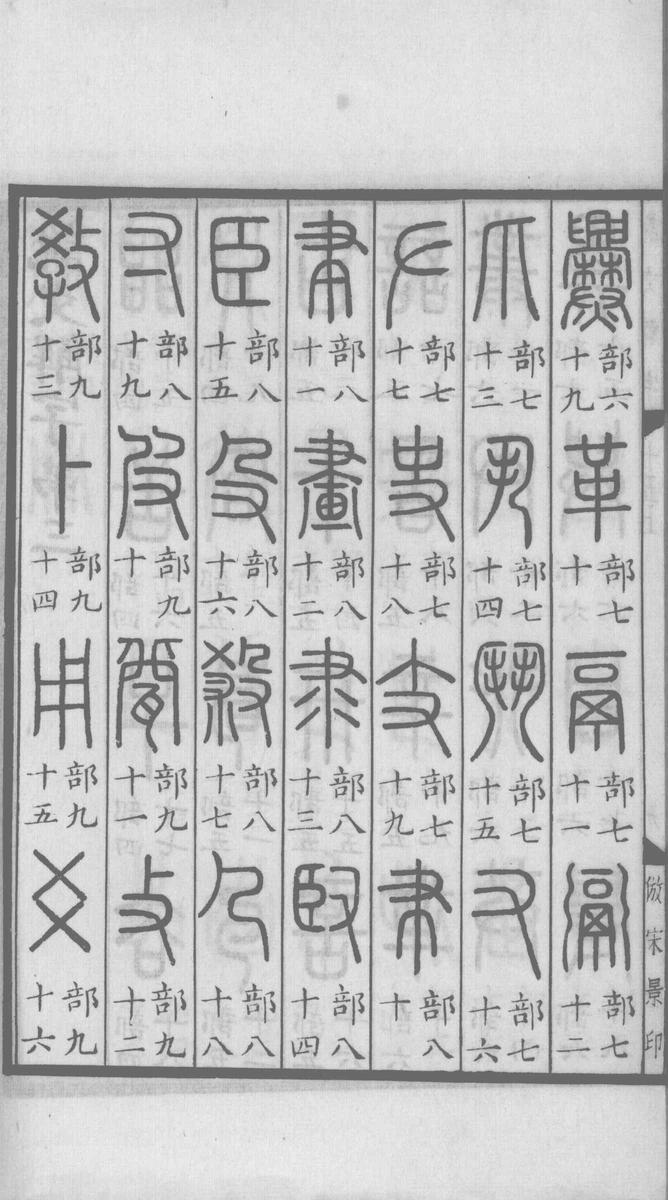 爨 部六十九 革 部七十 鬲 部七十一 䰜 部七十二
爪 部七十三 丮 部七十四 鬥 部七十五 又 部七十六
𠂇 部七十七 史 部七十八 支 部七十九 𦘒 部八十
聿 部八十一 畫 部八十二 隶 部八十三 臤 部八十四
臣 部八十五 殳 部八十六 殺 部八十七 𠘧 部八十八
寸 部八十九 皮 部九十 㼱 部九十一 攴 部九十二
教 部九十三 卜 部九十四 用 部九十五 爻 部九十六
倣宋景印